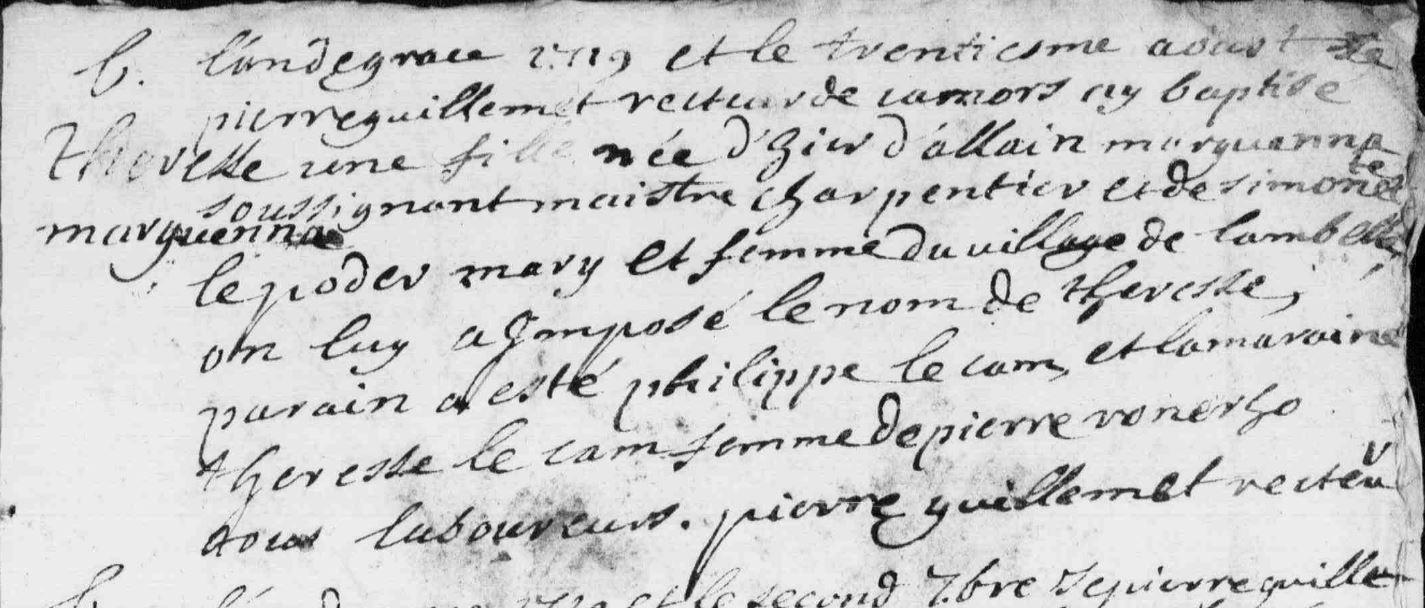 b. l'an de grace 1719 et le trentiesme aoust Je
pierre guillemet recteur de camors ay baptise
theresse une fille née d'hier d'allain marguenna
soussignant maistre charpentier et de simone te
marguenna
le poder mary et femme du village de lambelle
on luy a Jmposé le nom de theresse,
parain a esté philippe le cam, et la maraine
theresse le cam femme de pierre vonerho
tous laboureurs. pierre guillemet recteur
b. l'an de 1719 et le second 7bre Je pierre guille